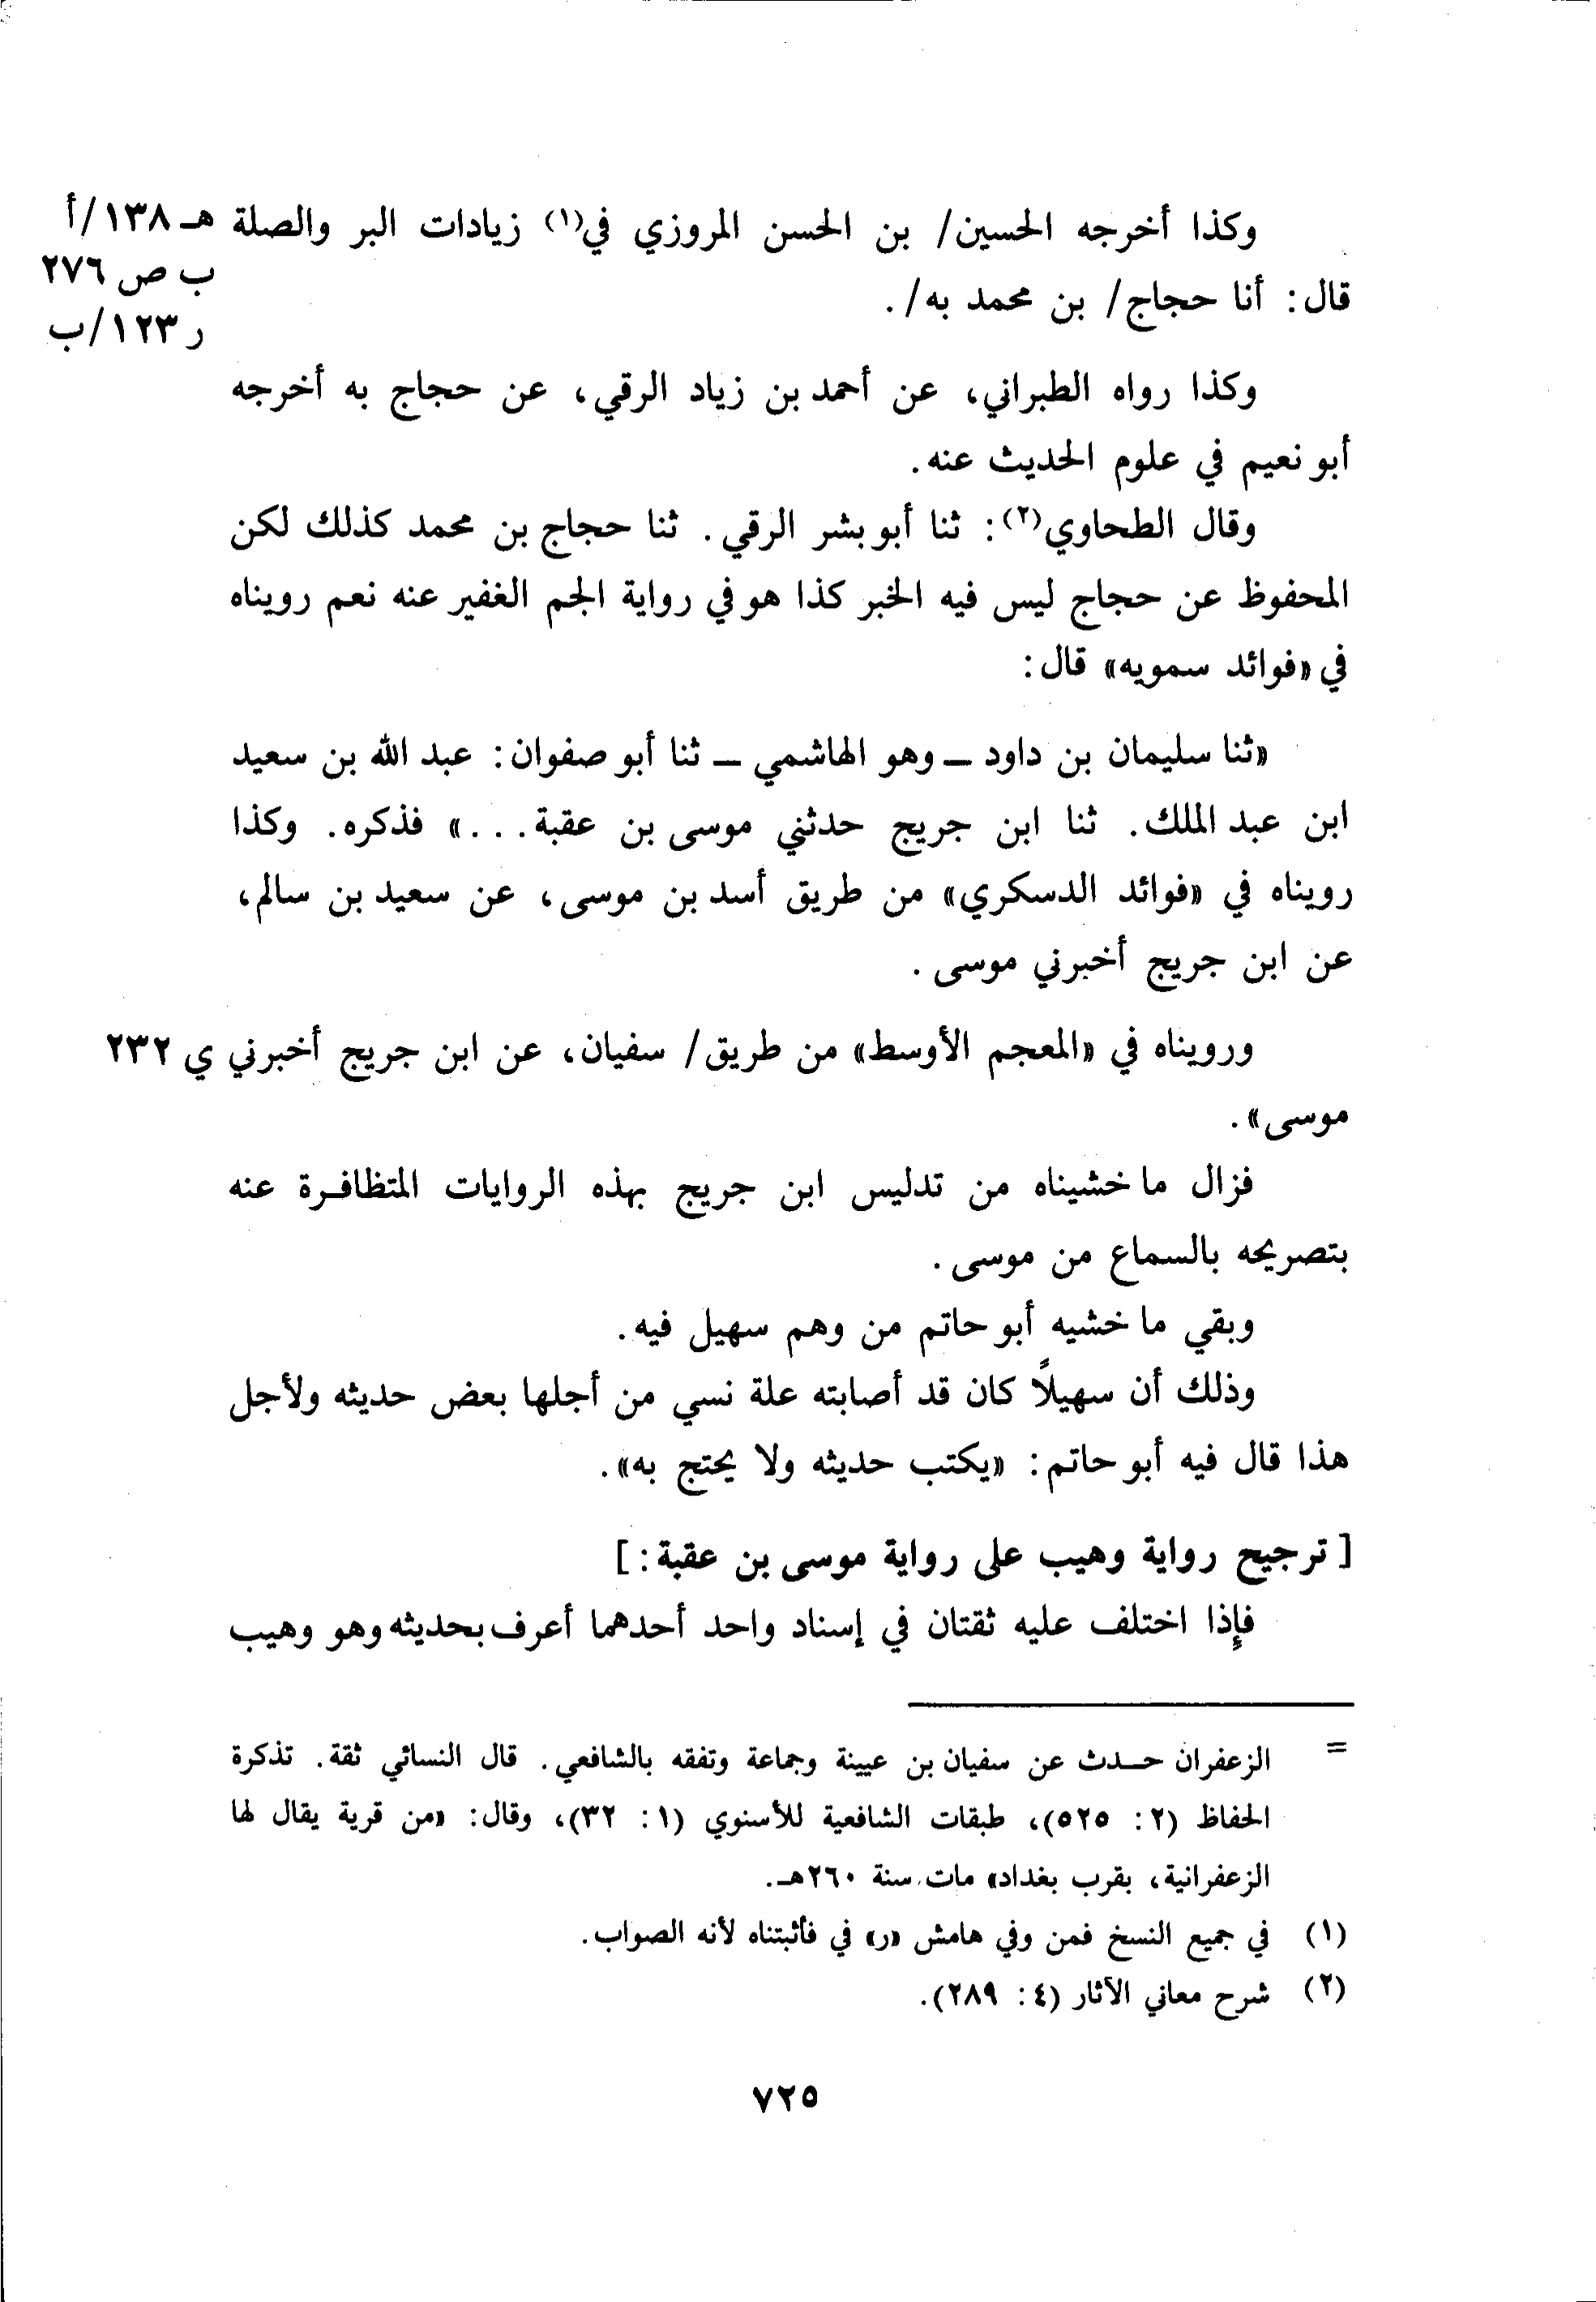 وكذا أخرجه الحسين/ بن الحسن المروزي في(١) زيادات البر والصلة هـ ١٣٨/أ
ب ص ٢٧٦
قال: أنا حجاج/ بن محمد به/.
ر ١٢٣/ب
وكذا رواه الطبراني، عن أحمد بن زياد الرقي، عن حجاج به أخرجه
أبو نعيم في علوم الحديث عنه.
وقال الطحاوي(٢): ثنا أبو بشر الرقي. ثنا حجاج بن محمد كذلك لكن
المحفوظ عن حجاج ليس فيه الخبر كذا هو في رواية الجم الغفير عنه نعم رويناه
في «فوائد سمويه» قال:
«ثنا سليمان بن داود — وهو الهاشمي — ثنا أبو صفوان: عبد الله بن سعيد
ابن عبد الملك. ثنا ابن جريج حدثني موسى بن عقبة...» فذكره. وكذا
رويناه في «فوائد الدسكري» من طريق أسد بن موسى، عن سعيد بن سالم،
عن ابن جريج أخبرني موسى.
ورويناه في «المعجم الأوسط» من طريق/ سفيان، عن ابن جريج أخبرني ي ٢٣٢
موسى».
فزال ما خشيناه من تدليس ابن جريج بهذه الروايات المتظافرة عنه
بتصريحه بالسماع من موسى.
وبقي ما خشيه أبو حاتم من وهم سهيل فيه.
وذلك أن سهيلاً كان قد أصابته علة نسي من أجلها بعض حديثه ولأجل
هذا قال فيه أبو حاتم: «يكتب حديثه ولا يحتج به».
[ترجيح رواية وهيب على رواية موسى بن عقبة:]
فإذا اختلف عليه ثقتان في إسناد واحد أحدهما أعرف بحديثه وهو وهيب
= الزعفران حدث عن سفيان بن عيينة وجماعة وتفقه بالشافعي. قال النسائي ثقة. تذكرة
الحفاظ (٢: ٥٢٥)، طبقات الشافعية للأسنوي (١: ٣٢)، وقال: «من قرية يقال لها
الزعفرانية، بقرب بغداد» مات سنة ٢٦٠هـ.
(١) في جميع النسخ فمن وفي هامش «ر» في فأثبتناه لأنه الصواب.
(٢) شرح معاني الآثار (٤: ٢٨٩).
٧٢٥